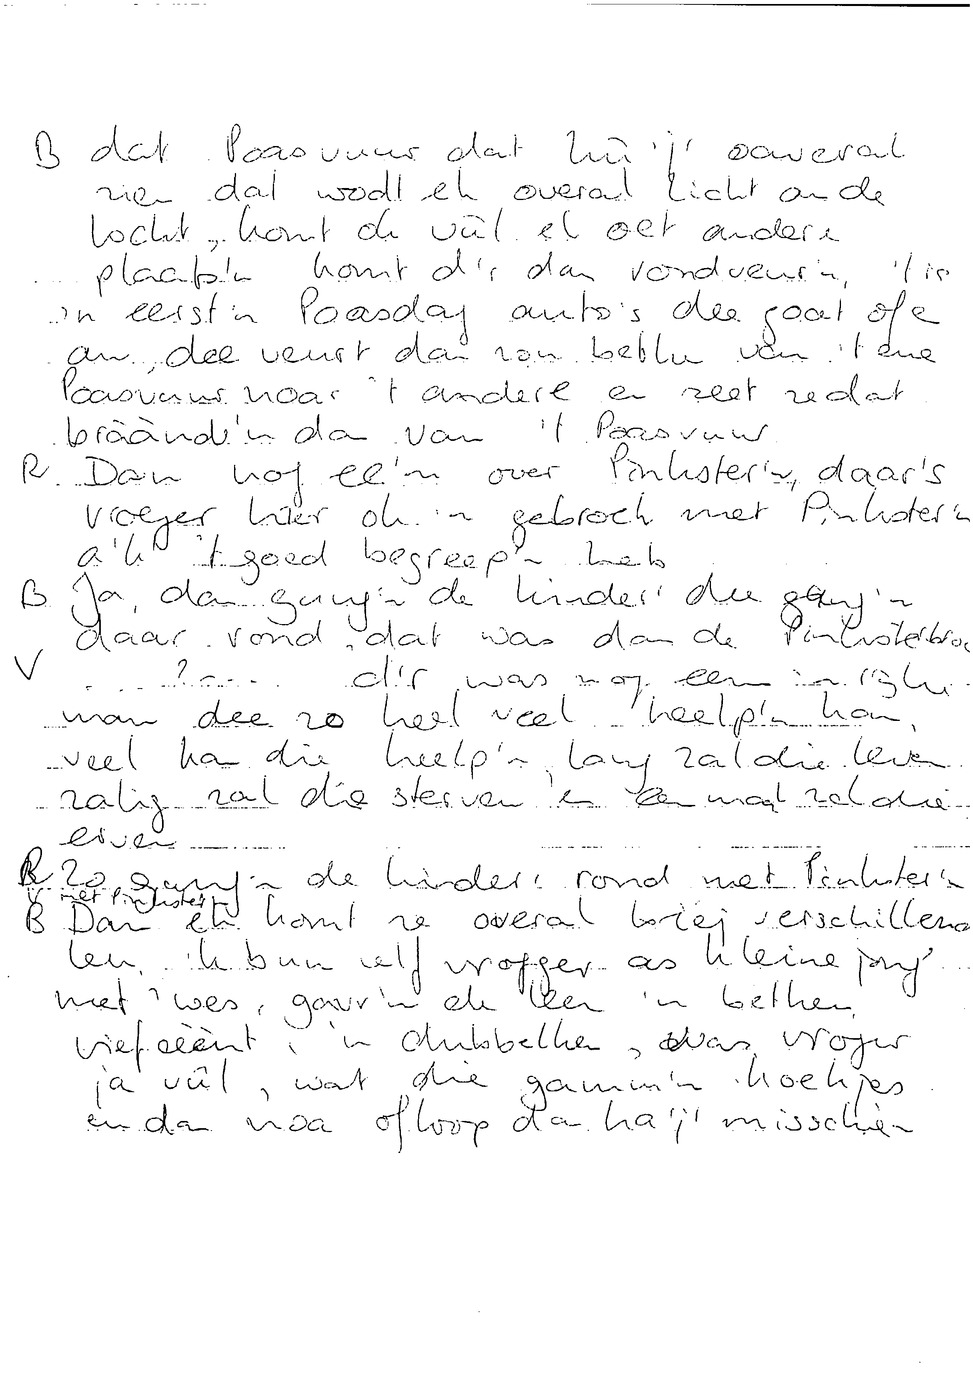 B dat Paasvuur dat kü 'j' oaveral
zien dat wodt ek overal licht an de
locht, komt ok vûl el oet andere
plaats'n komt d'r dan rondveur'n, 't is
'n eerst'n Poasdag auto's dee goat of e
an, dee veurt dan zon betke van 't ene
Poasvuur noar 't andere en zeet ze dat
bräänd'n dan van 't Poasvuur
R. Dan nog ee'n over Pinkster'n, daar's
vroeger hier ok 'n gebroek met Pinkster'n
a'k 't goed begreep'n heb
B Ja, dan gung'n de kinder' die gung'n
daar rond, dat was dan de Pinksterbroe
V ....?..... d'r was nog een rijke
man dee zo heel veel heelp'n kan,
veel kan die heelp'n, lang zal die leven
zalig zal die sterven en een maal zal die
erven
R Zo gung'n de kinder' rond met Pinkster'n
V met Pinkster'n
B Dan ek komt ze overal kriej verschillend
leu, ik bun zelf vrogger as kleine jong'
met 'wes, gaav'n de leu 'n betken,
viefcëënt, 'n dubbelken, was vroger
ja vûl, wat die gaamm'n koekjes
en dan noa ofloop dan ha'j' misschien